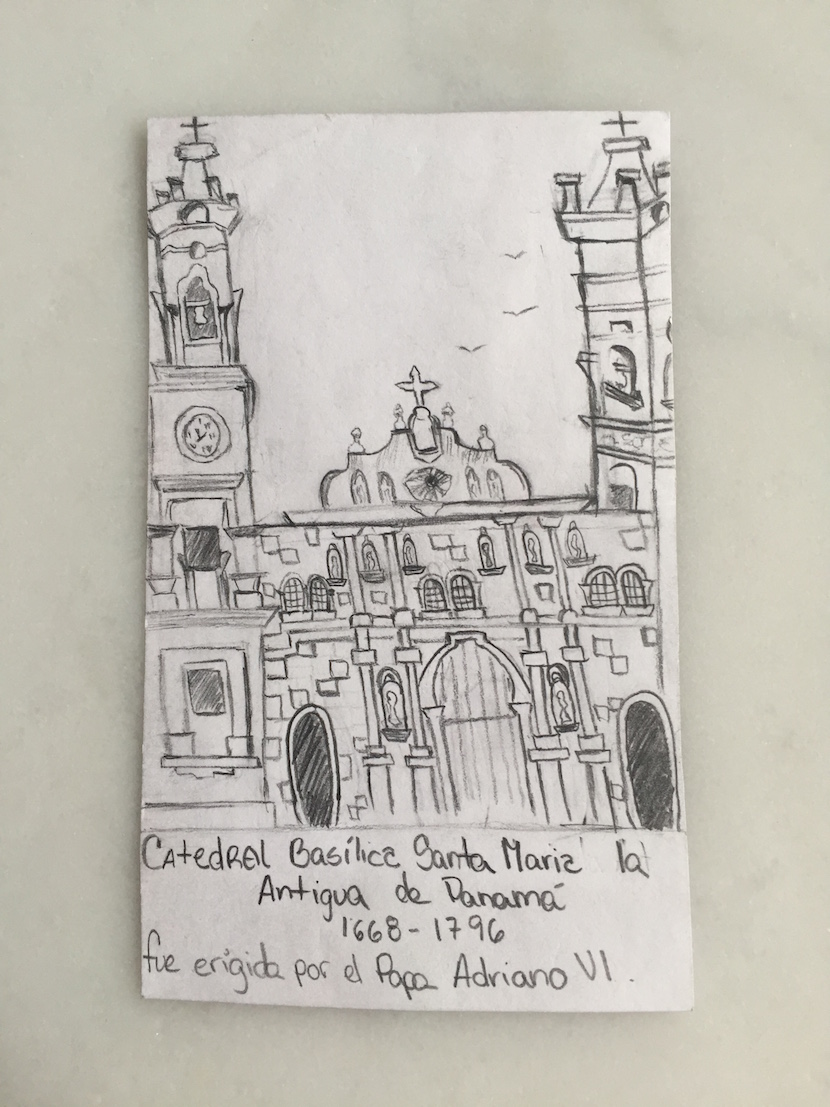 CAtedRal Basílica Santa Maria la
Antigua de Panamá
1668-1796
fue erigida por el Papa Adriano VI.